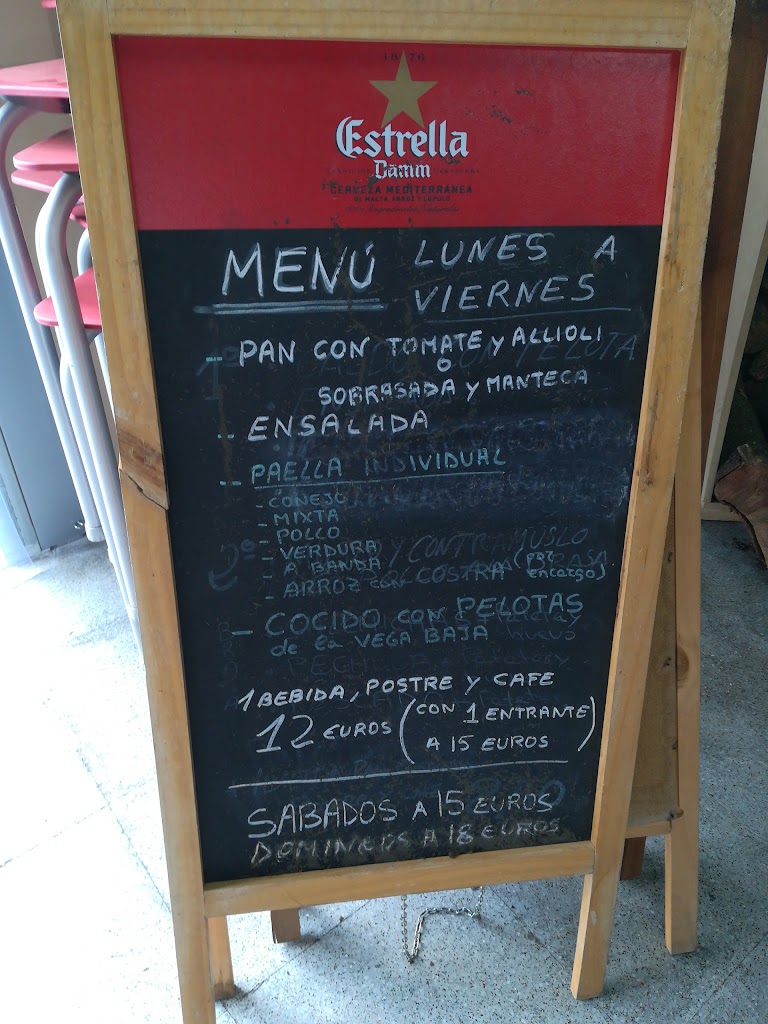 1876
Estrella
Damm
CERVEZA MEDITERRÁNEA
DE MALTA, ARROZ Y LÚPULO
MENÚ LUNES A
VIERNES
- PAN CON TOMATE Y ALLIOLI
O
SOBRASADA Y MANTECA
-- ENSALADA
-- PAELLA INDIVIDUAL
- CONEJO
- MIXTA
- POLLO
- VERDURA
- A BANDA
- ARROZ CON COSTRA (por encargo)
- COCIDO CON PELOTAS
de la VEGA BAJA
1 BEBIDA, POSTRE Y CAFE
12 EUROS (CON 1 ENTRANTE)
A 15 EUROS
SABADOS A 15 EUROS
DOMINGOS A 18 EUROS